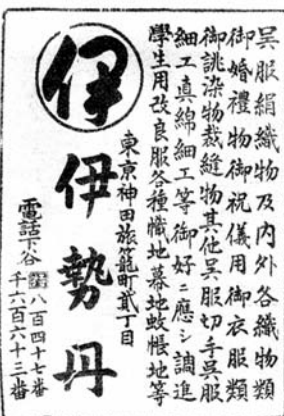 呉服絹織物及内外各織物類
御婚禮物御祝儀用御衣服類
御誂染物裁縫物其他呉服切手呉服
細工真綿細工等御好ニ應シ調進
學生用改良服各種幟地幕地蚊帳地等
東京神田旅籠町貳丁目
伊
伊勢丹
電話下谷
八百四十七番
千六百六十三番